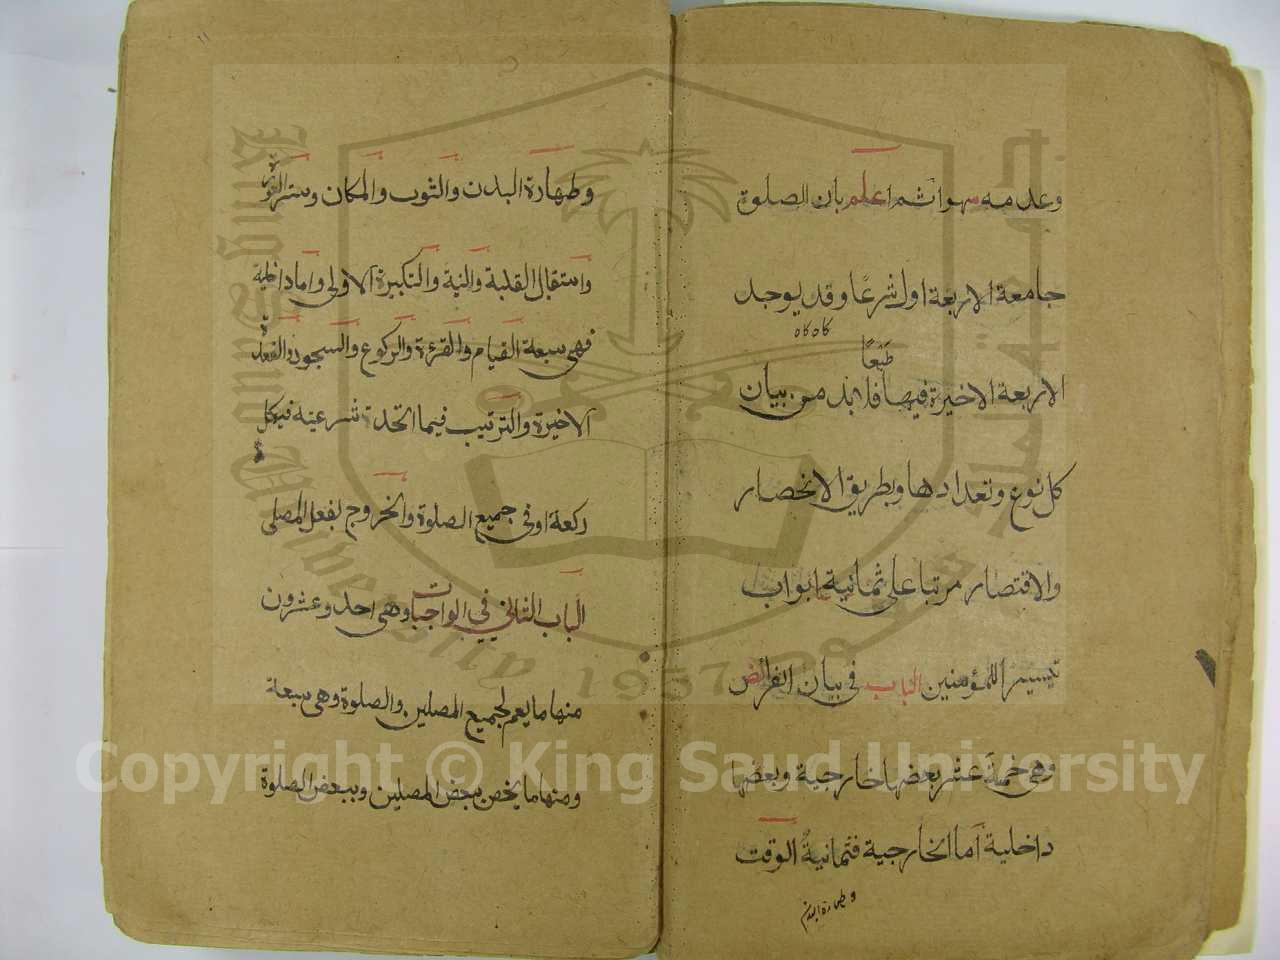 وعدمه سهوا ثم اعلم بان الصلوة
جامعة الاربعة اول شرعًا وقد يوجد
طبعًا
الاربعة الاخيرة فيها فلا بد من بيان
كل نوع وتعدادها وبطريق الانحصار
والاقتصار مرتبا على ثمانية ابواب
تيسيرا للمؤمنين الباب في بيان الفرائض
وهي خمسة عشر بعضها خارجية وبعضها
داخلية اما الخارجية فثمانية الوقت
وطهارة البدن
١١
وطهارة البدن والثوب والمكان وستر العورة
واستقبال القلبة والنية والتكبيرة الاولى واما داخلية
فهي سبعة القيام والقرءة والركوع والسجود والقعدة
الاخيرة والترتيب فيما اتحدة شرعيته في كل
ركعة او في جميع الصلوة والخروج لفعل المصلى
الباب الثاني في الواجبات وهي احد وعشرون
منها ما يعم لجميع المصلين والصلوة وهي سبعة
ومنها ما يخص ببعض المصلين وببعض الصلوة
King Saud University
1957
Copyright © King Saud University